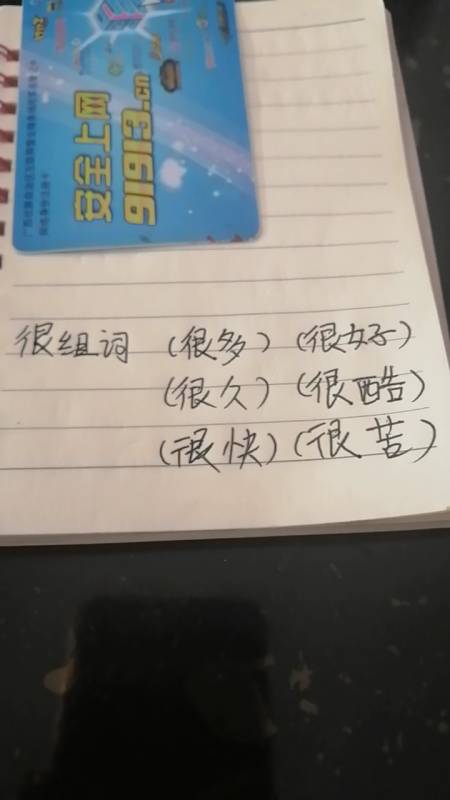 安全上网
91913.cn
很组词 (很多) (很好)
(很久) (很酷)
(很快) (很苦)